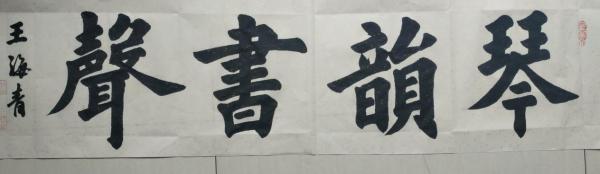 琴韻書聲
王海青